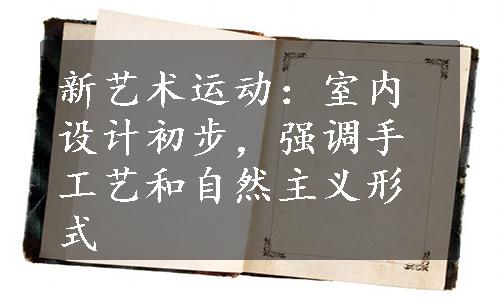 新艺术运动：室内
设计初步，强调手
工艺和自然主义形
式